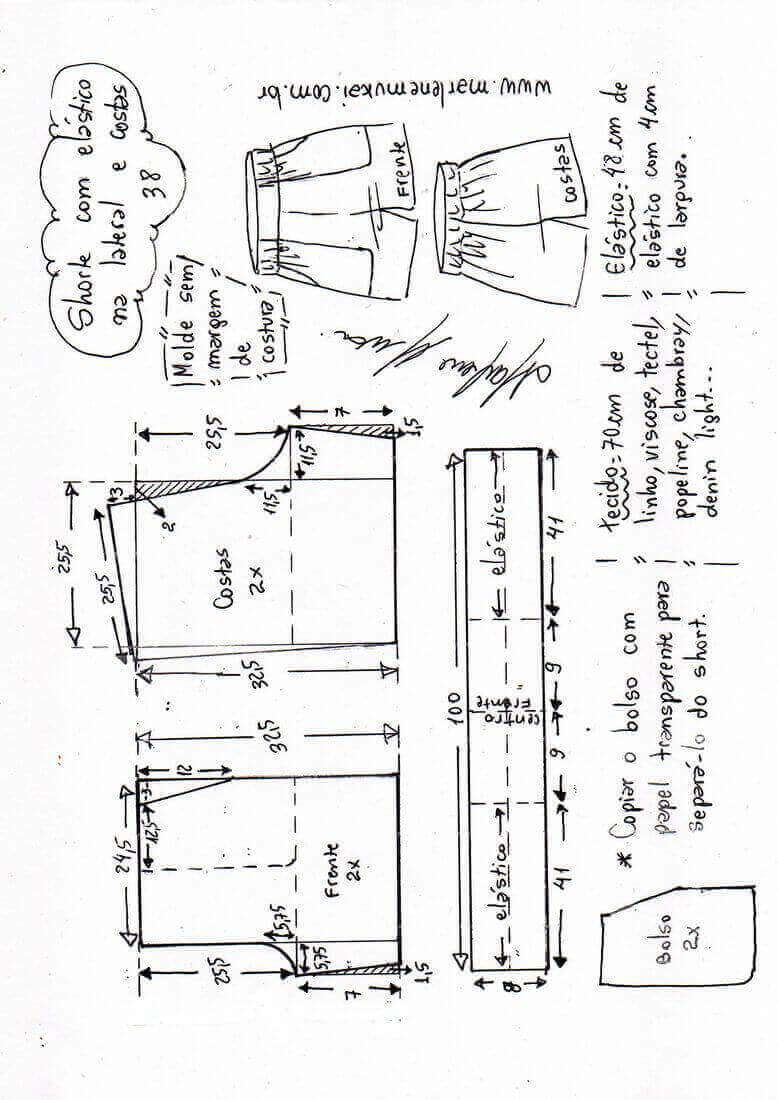 Shorte com elástico
na lateral e costas
38
Molde sem
margem
de
costura
www.marlenemukai.com.br
Frente
Costas
24,5
12,5
3
12
25,5
5,75
5,75
7
1,5
32,5
Frente
2x
25,5
25,5
3
2
25,5
11,5
11,5
7
1,5
32,5
Costas
2x
100
elástico
centro
Frente
elástico
8
41
9
9
41
Bolso
2x
* Copiar o bolso com
papel transparente para
separá-lo do short.
tecido=70cm de
linho, viscose, tectel,
popeline, chambray,
denin light...
Elástico=48cm de
elástico com 4cm
de largura.